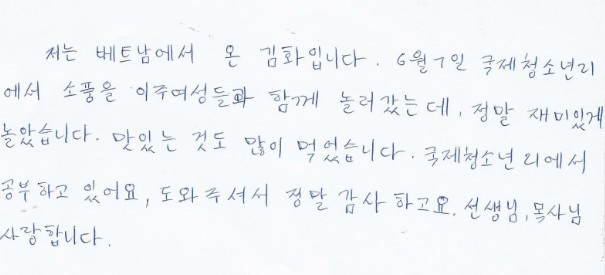 저는 베트남에서 온 김화입니다. 6월7일 국제청소년리
에서 소풍을 이주여성들과 함께 놀러갔는데, 정말 재미있게
놀았습니다. 맛있는 것도 많이 먹었습니다. 국제청소년리에서
공부하고 있어요, 도와주셔서 정말 감사하고요. 선생님, 목사님
사랑합니다.